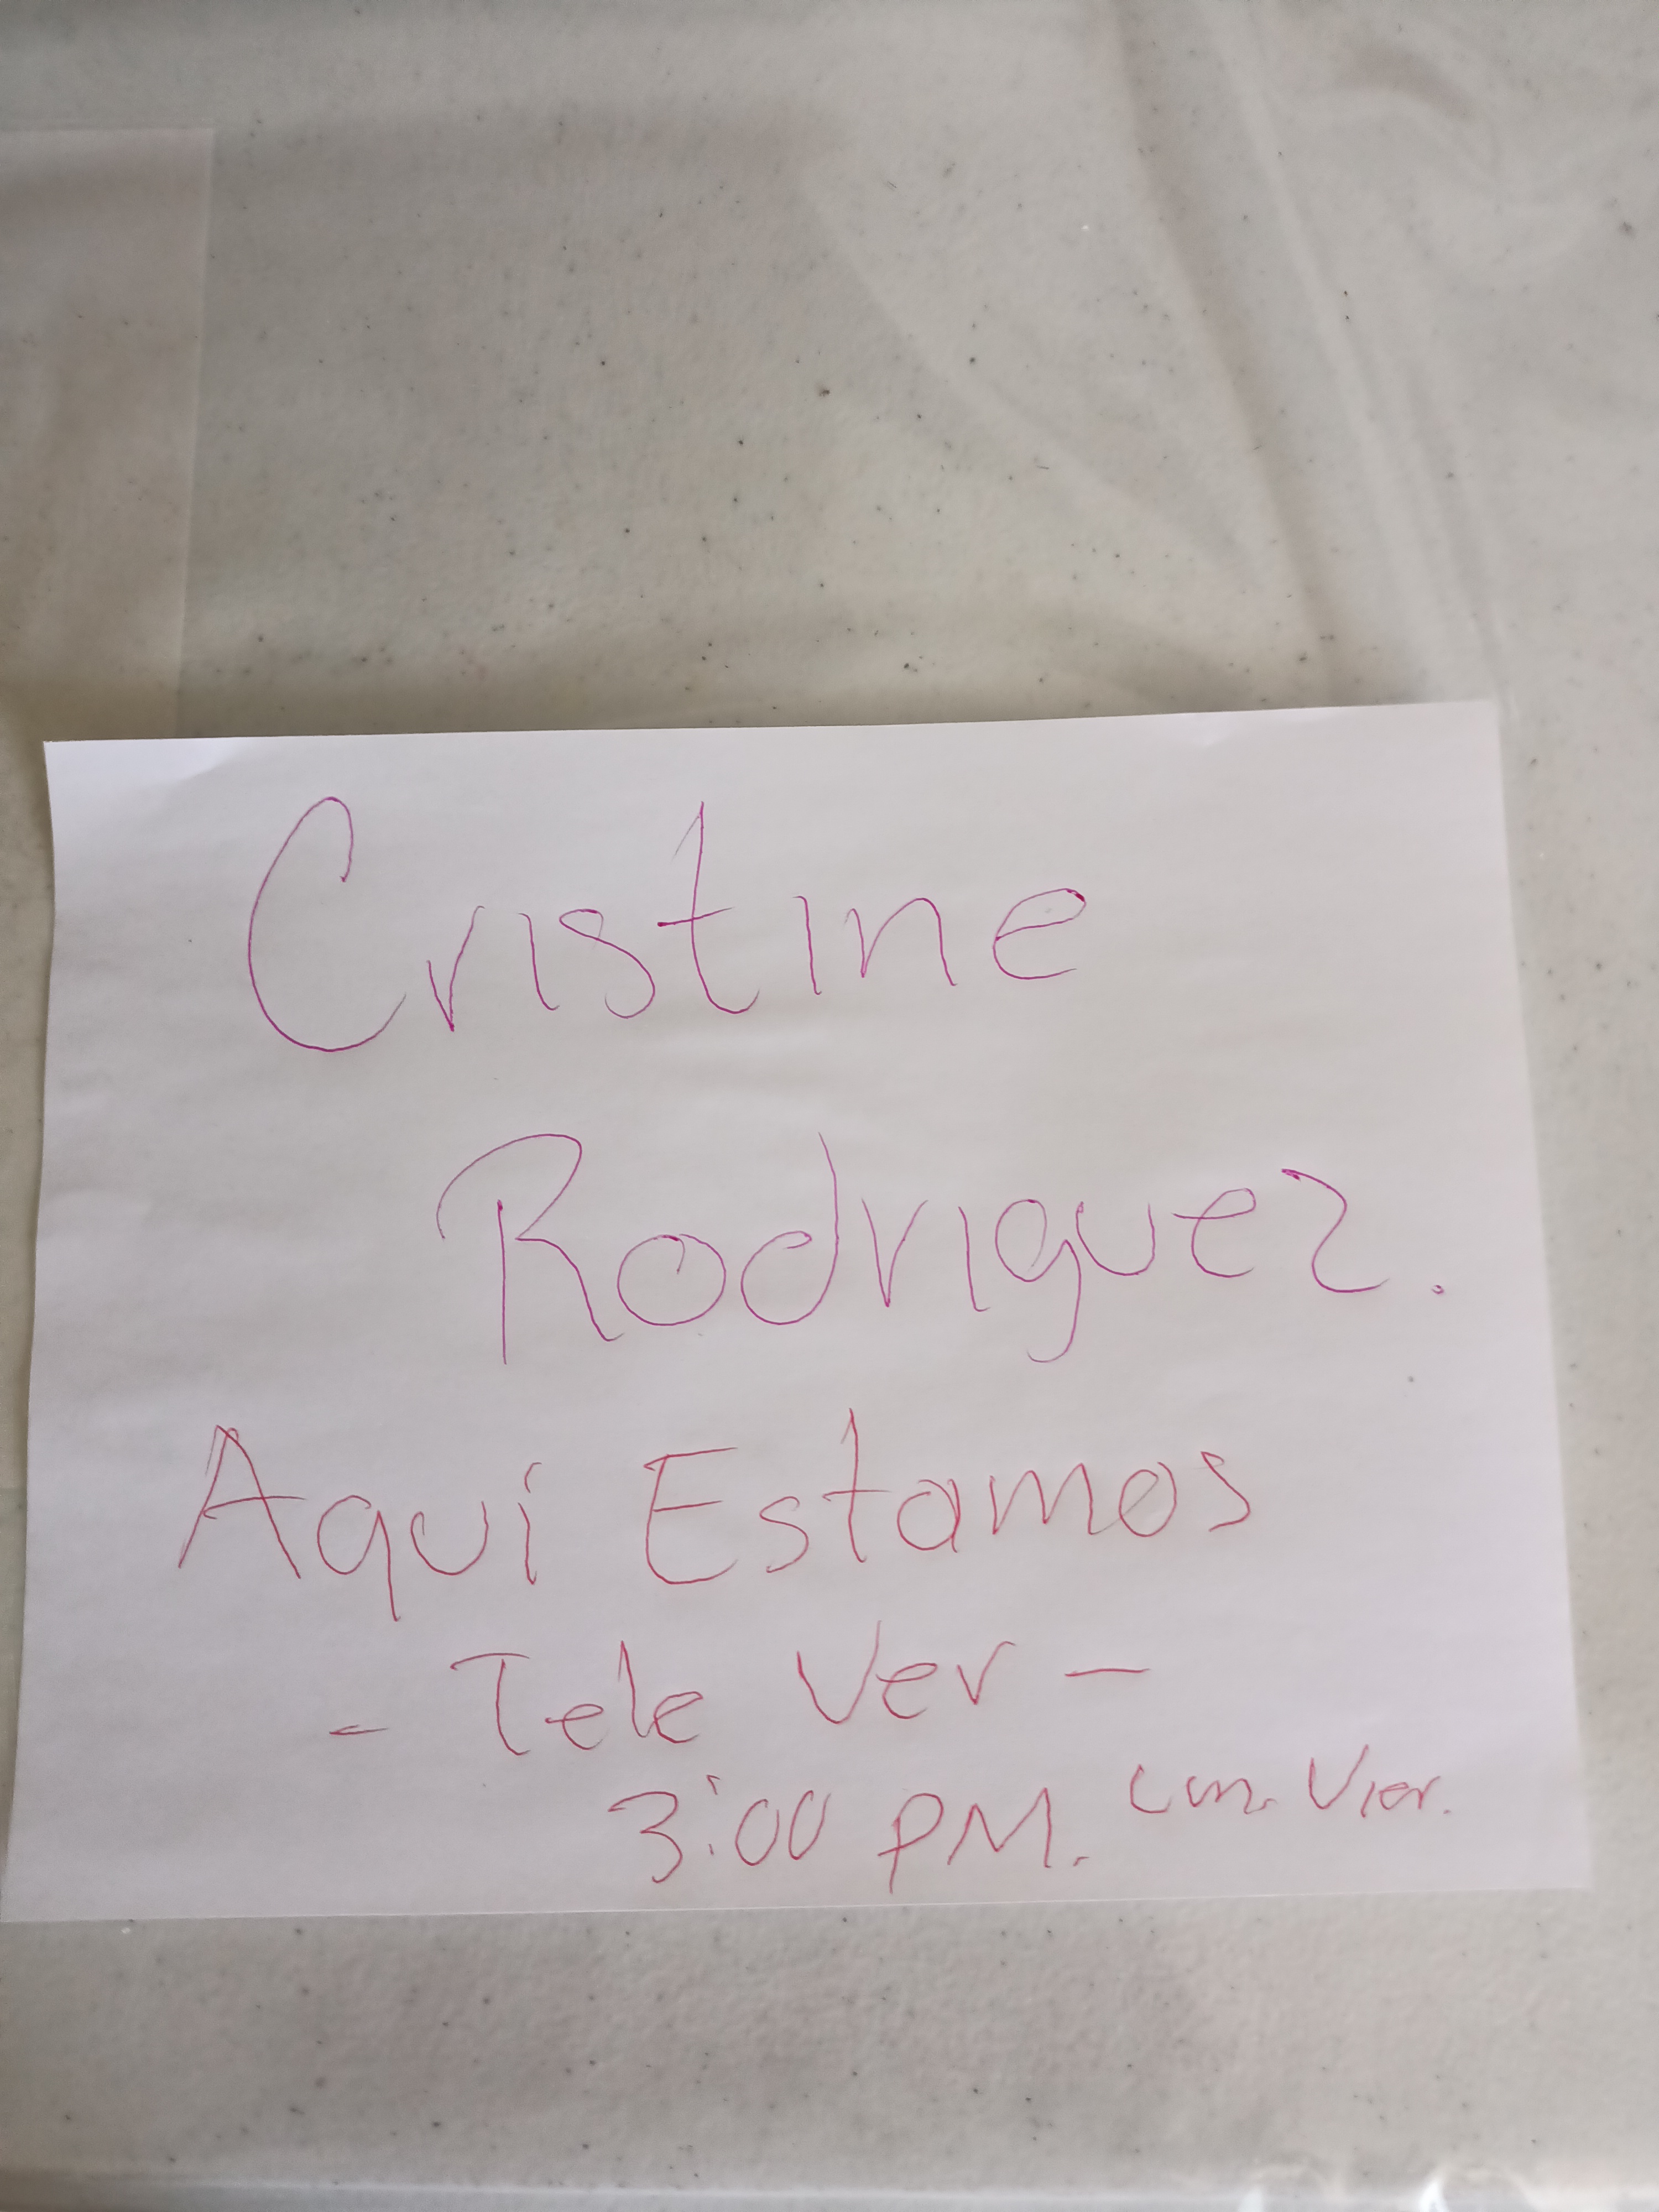 Cristine
Rodriguez.
Aquí Estamos
- Tele Ver -
3:00 PM. Lun. Vier.